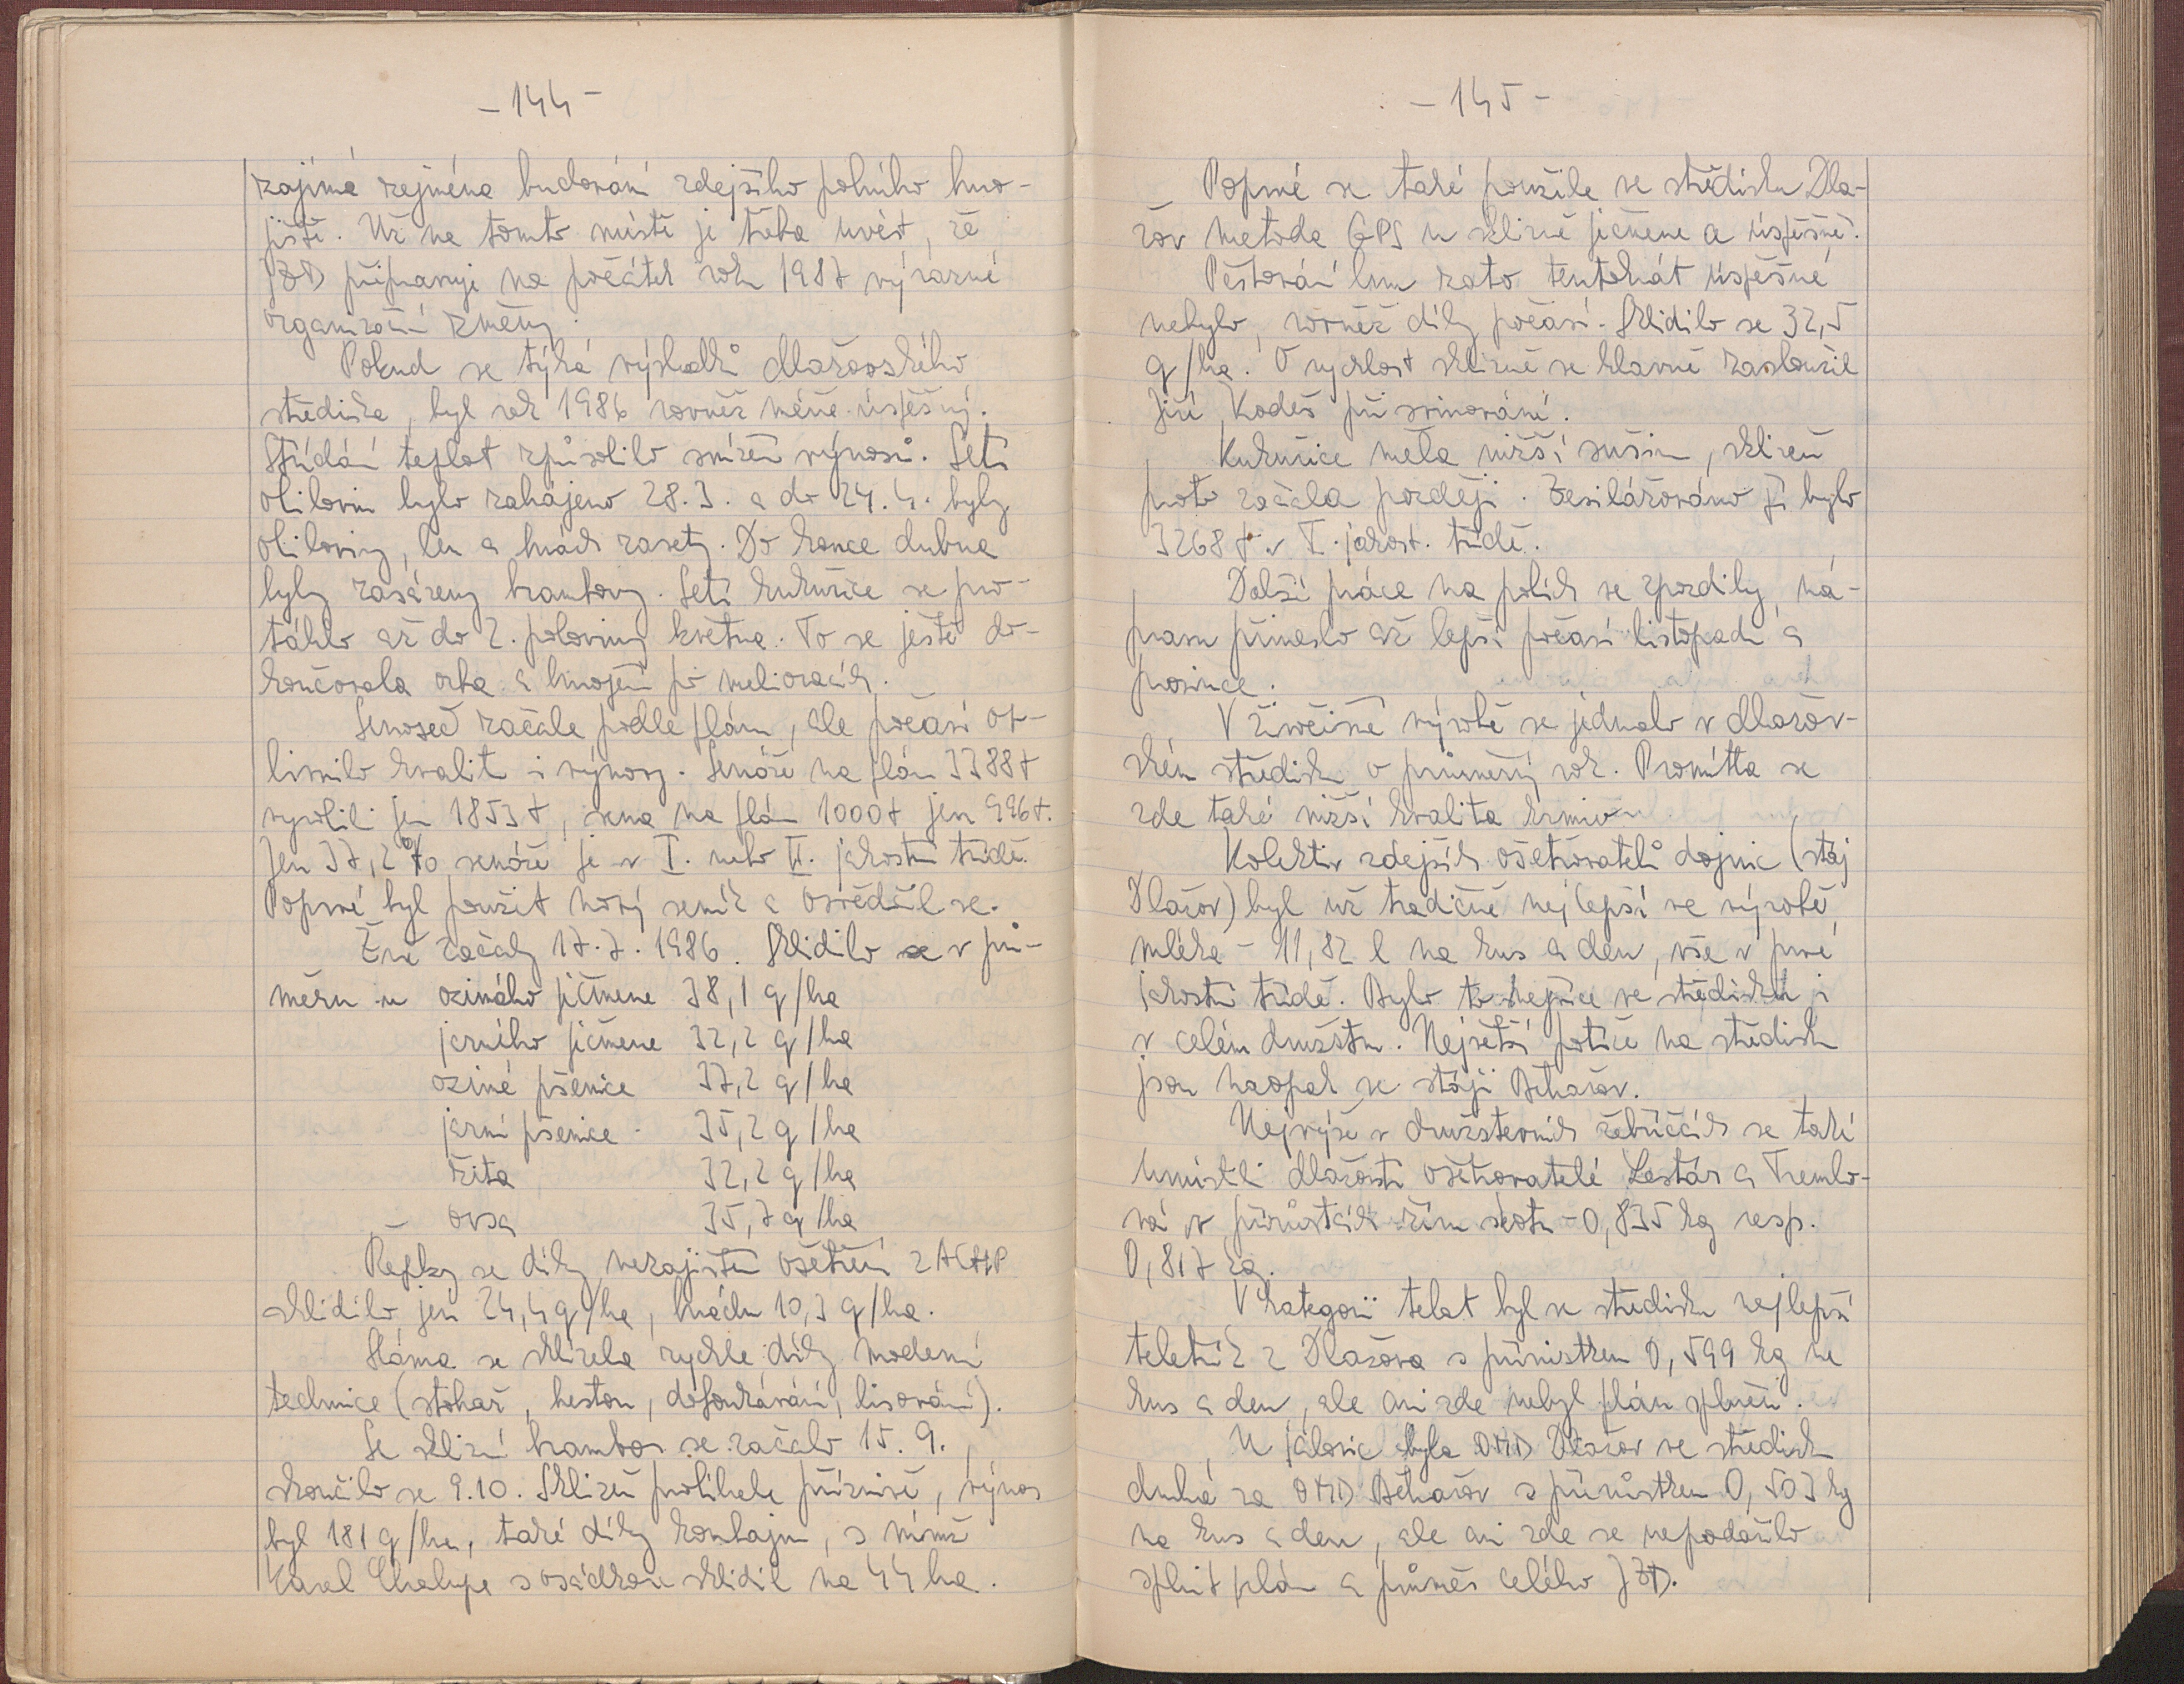 - 144 -
zajímá zejména budování zdejšího polního hno-
jiště. Už na tomto místě je třeba uvést, že
JZD připravuje na počátek roku 1987 výrazné
organizační změny.
Pokud se týká výsledků dlažovského
střediska, byl rok 1986 rovněž méně úspěšný.
Střídání teplot způsobilo snížení výnosů. Setí
obilovin bylo zahájeno 28.3. a do 24.4. byly
obiloviny, len a hrách zasety. Do konce dubna
byly zasázeny brambory. Setí kukuřice se pro-
táhlo až do 2. poloviny května. To se ještě do-
končovala orba a hnojení po melioracích.
Senoseč začala podle plánu, ale počasí ov-
livnilo kvalitu i výnosy. Senáže na plán 3388 t
vyrobili jen 1853 t, sena na plán 1000 t jen 996 t.
Jen 37,2 % senáže je v I. nebo II. jakostní třídě.
Poprvé byl použit nový seník a osvědčil se.
Žně začaly 17.7.1986. Sklidilo se v prů-
měru u ozimého ječmene 38,1 q/ha
jarního ječmene 32,2 q/ha
ozimé pšenice 37,2 q/ha
jarní pšenice 35,2 q/ha
žita 32,2 q/ha
ovsa 35,7 q/ha
Řepky se díky nezajištění ošetření z ACHP
sklidilo jen 24,4 q/ha, hrachu 10,3 q/ha.
Sláma se sklízela rychle díky moderní
technice (stohař, heston, dofoukávání, lisování).
Se sklizní brambor se začalo 15.9.,
skončilo se 9.10. Sklizeň probíhala příznivě, výnos
byl 181 q/ha, také díky kombajnu, s nímž
Karel Chalupa s osádkou sklidil na 44 ha.
- 145 -
Poprvé se také použila ve středisku Dla-
žov metoda GPS u sklizně ječmene a úspěšně.
Pěstování lnu zato tentokrát úspěšné
nebylo, rovněž díky počasí. Sklidilo se 32,5
q/ha. O rychlost sklizně se hlavně zasloužil
Jiří Kodeš při svinování.
Kukuřice měla nižší sušinu, sklizeň
proto začala později. Zesilážováno jí bylo
3268 t v I. jakost. třídě.
Další práce na polích se zpozdily, ná-
pravu přineslo až lepší počasí listopadu a
prosince.
V živočišné výrobě se jednalo v dlažov-
ském středisku o průměrný rok. Promítla se
zde také nižší kvalita krmiv.
Kolektiv zdejších ošetřovatelů dojnic (stáj
Dlažov) byl už tradičně nejlepší ve výrobě
mléka - 11,82 l na kus a den, vše v prvé
jakostní třídě. Bylo to nejvíce ve středisku i
v celém družstvu. Největší potíže na středisku
jsou naopak ve stáji Běhařov.
Nejvýše v družstevních žebříčcích se také
umístili dlažovští ošetřovatelé Lestár a Tremlo-
vá v přírůstcích žíru skotu - 0,835 kg resp.
0,817 kg.
V kategorii telat byl ve středisku nejlepší
teletník z Dlažova s přírůstkem 0,599 kg na
kus a den, ale ani zde nebyl plán splněn.
U jalovic byla OMD Dlažov ve středisku
druhá za OMD Běhařov s přírůstkem 0,503 kg
na kus a den, ale ani zde se nepodařilo
splnit plán a průměr celého JZD.